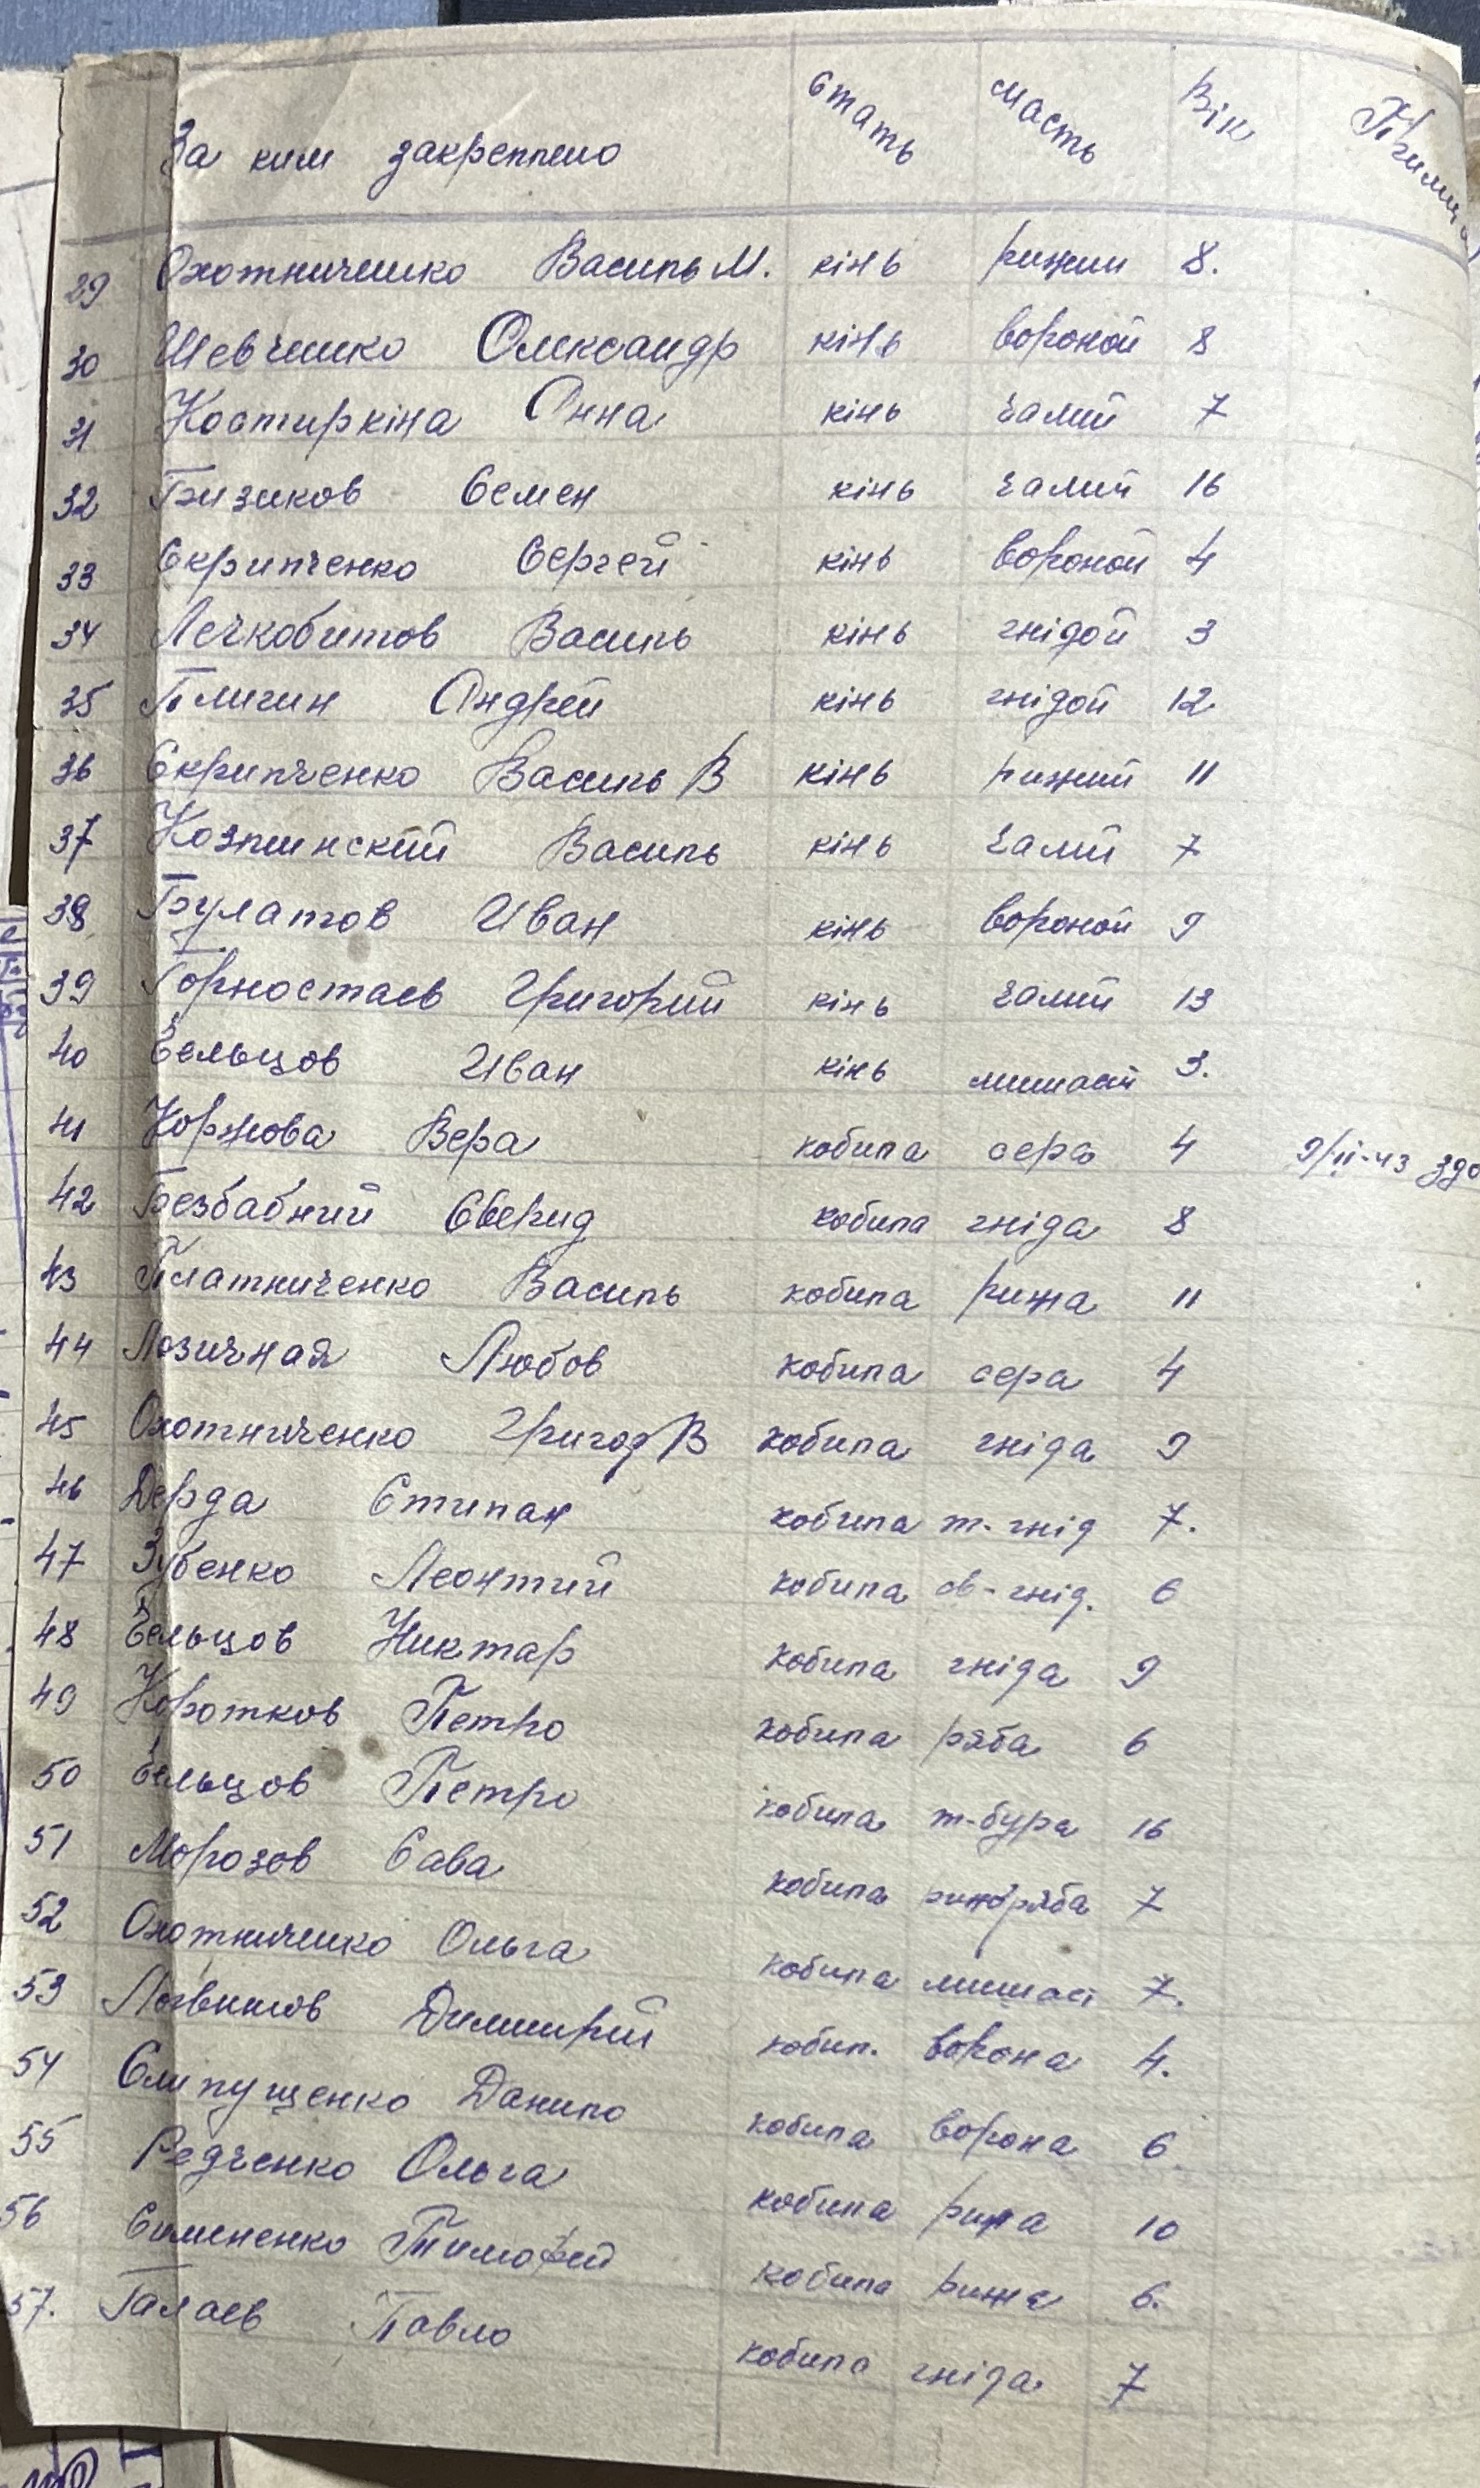 За ким закреплено стать масть Вік
29 Охотниченко Василь М. кінь рижий 8.
30 Шевченко Олександр кінь вороной 8
31 Костиркіна Анна кінь чалий 7
32 Бизиков Семен кінь чалий 16
33 Скрипченко Сергей кінь вороной 4
34 Легкобитов Василь кінь гнідой 3
35 Плигин Андрей кінь гнідой 12
36 Скрипченко Василь В кінь рижий 11
37 Козлинский Василь кінь чалий 7
38 Булатов Иван кінь вороной 9
39 Горностаев Григорий кінь чалий 13
40 Бельцов Иван кінь мишаст 3.
41 Коржова Вера кобила сера 4 9/II-43
42 Безбабний Сверид кобила гніда 8
43 Платниченко Василь кобила рижа 11
44 Лозичная Любов кобила сера 4
45 Охотниченко Григор В кобила гніда 9
46 Дерда Стипан кобила т-гнід 7.
47 Зубенко Леонтий кобила св-гнід. 6
48 Бельцов Никтар кобила гніда 9
49 Коротков Петро кобила ряба 6
50 Бельцов Петро кобила т-бура 16
51 Морозов Сава кобила 7
52 Охотниченко Ольга кобила мишаст 7.
53 Логвинов Димитрий кобил. ворона 4.
54 Слипущенко Данило кобила ворона 6
55 Редченко Ольга кобила рижа 10
56 Симененко Тимофей кобила рижа 6.
57. Галаев Павло кобила гніда 7